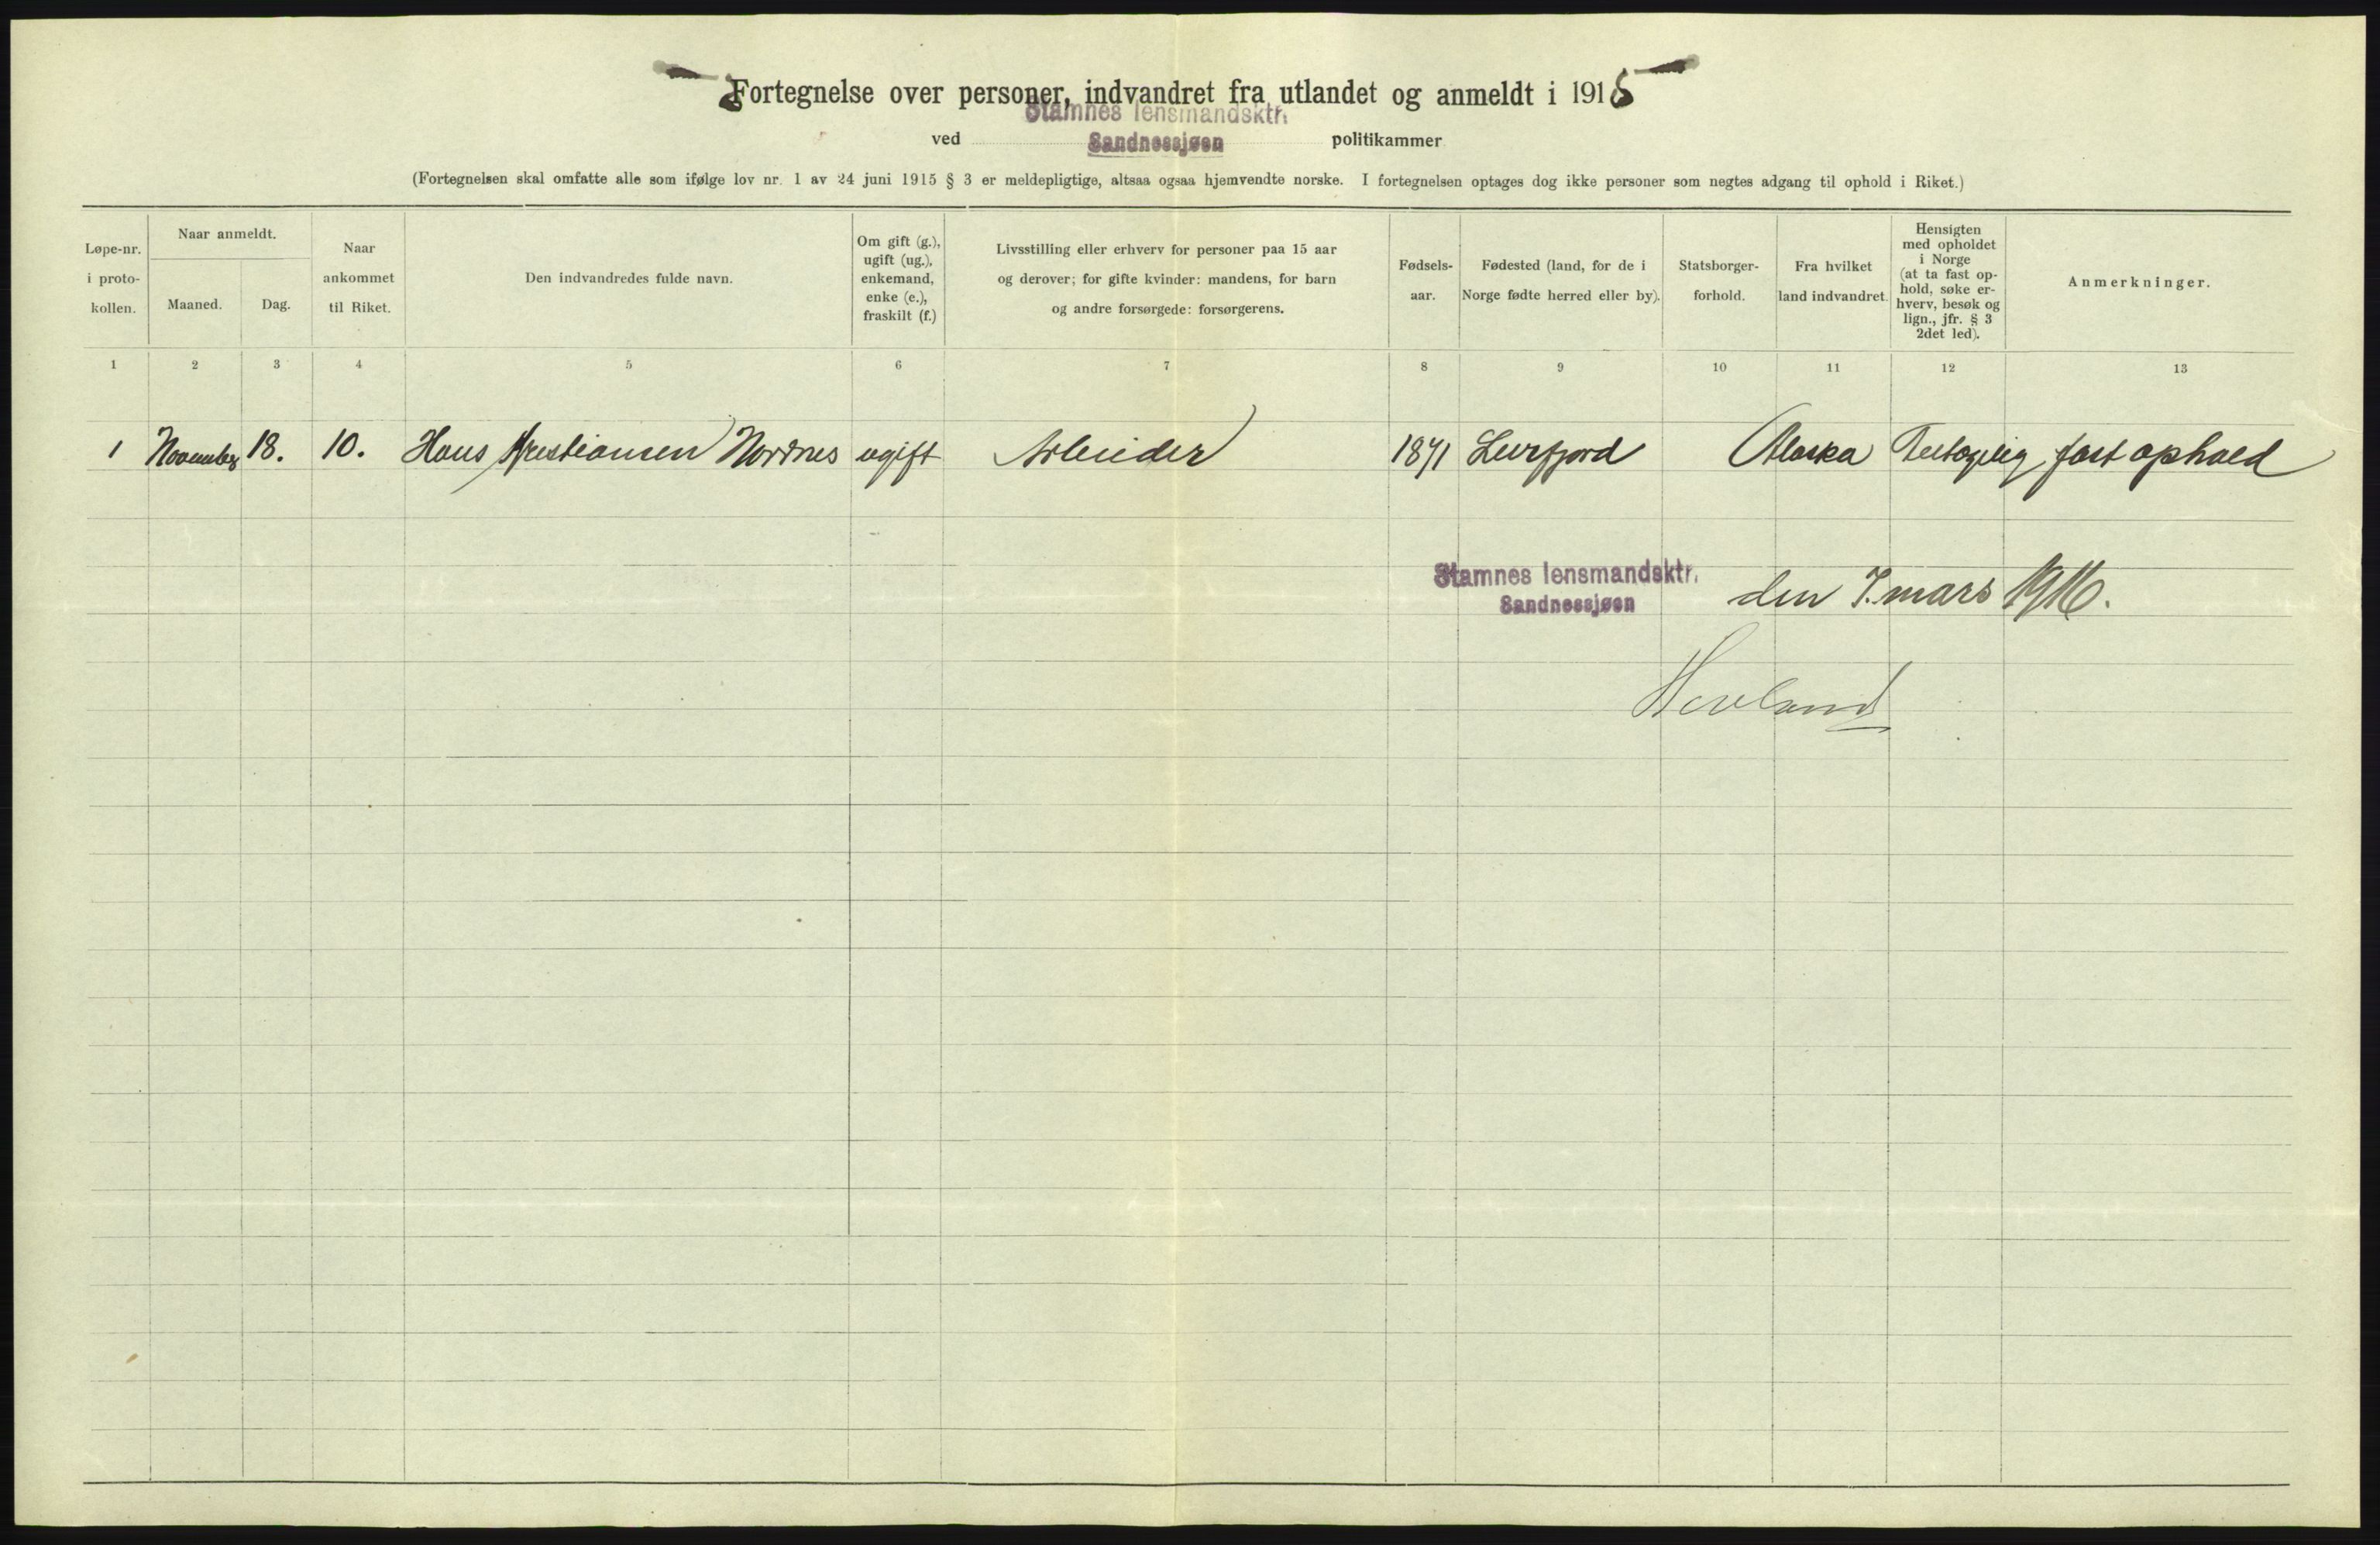 Fortegnelse over personer, indvandret fra utlandet og anmeldt i 1915
Stamnes lensmandsktr.
ved Sandnessjøen politikammer
(Fortegnelsen skal omfatte alle som ifølge lov nr. 1 av 24 juni 1915 § 3 er meldepligtige, altsaa ogsaa hjemvendte norske. I fortegnelsen optages dog ikke personer som negtes adgang til ophold i Riket.)
Løpe-nr.
i proto-
kollen.
Naar anmeldt.
Maaned.
Dag.
Naar
ankommet
til Riket.
Den indvandredes fulde navn.
Om gift (g.),
ugift (ug.),
enkemand,
enke (e.),
fraskilt (f.)
Livsstilling eller erhverv for personer paa 15 aar
og derover; for gifte kvinder: mandens, for barn
og andre forsørgede: forsørgerens.
Fødsels-
aar.
Fødested (land, for de i
Norge fødte herred eller by).
Statsborger-
forhold.
Fra hvilket
land indvandret.
Hensigten
med opholdet
i Norge
(at ta fast op-
hold, søke er-
hverv, besøk og
lign., jfr. § 3
2det led).
Anmerkninger.
1 2 3 4 5 6 7 8 9 10 11 12 13
1 November 18. 10. Hans Kristiansen Nordnes ugift Arbeider 1871 Leirfjord Alaska fast ophold
Stamnes lensmandsktr.
Sandnessjøen
den 7. mars 1916.